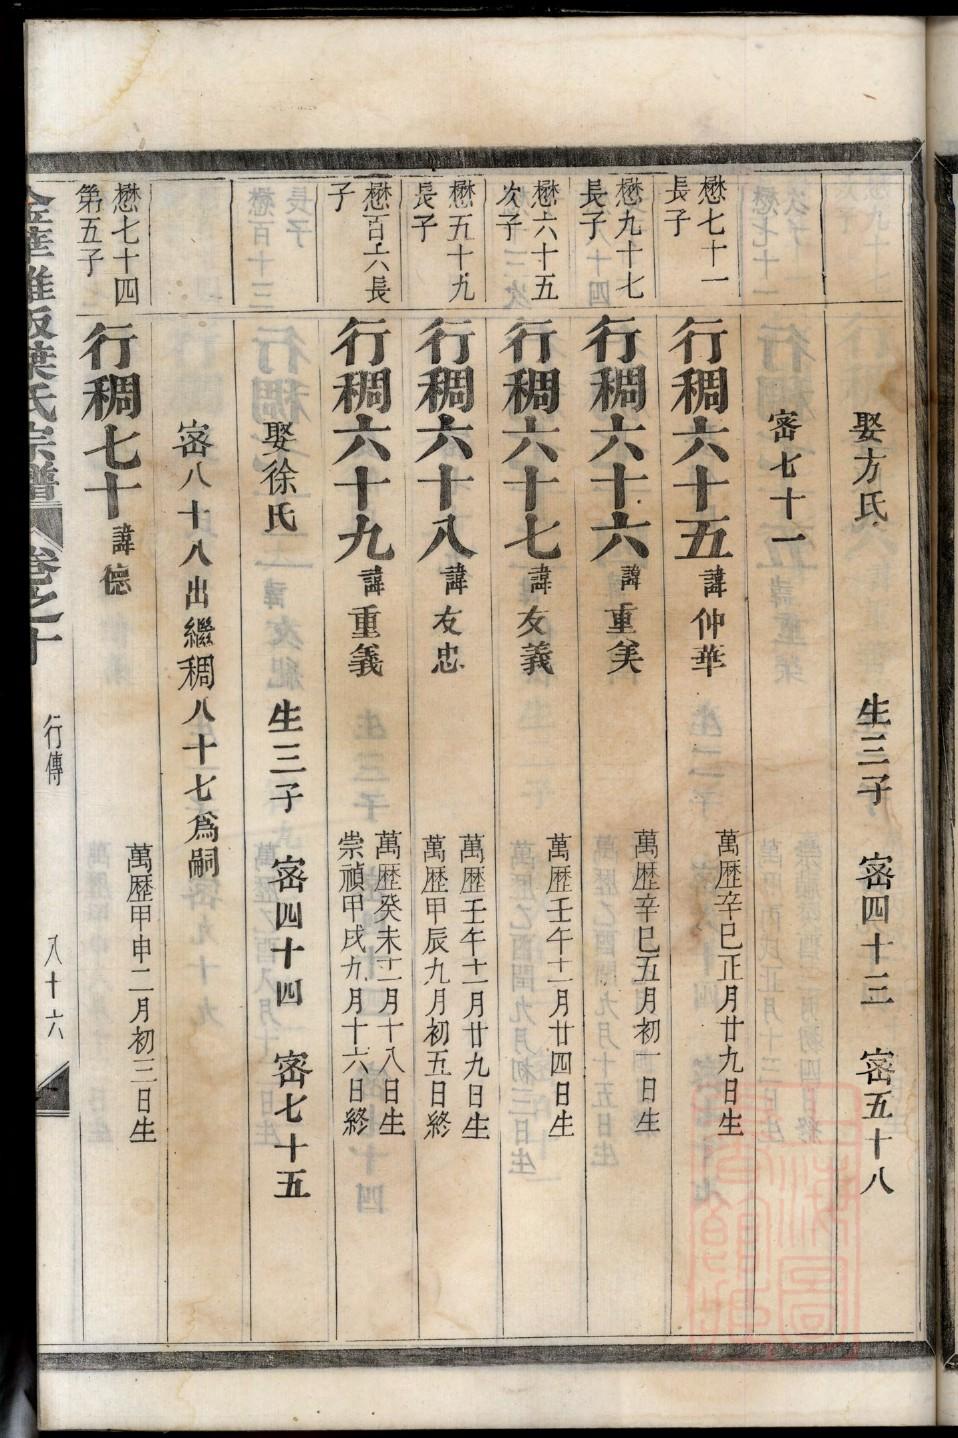 娶方氏 生三子 密四十三 密五十八
密七十一
懋七十一
長子
行稠六十五 諱仲華 萬歷辛巳正月廿九日生
懋九十七
長子
行稠六十六 諱重美 萬歷辛巳五月初一日生
懋六十五
次子
行稠六十七 諱友義 萬歷壬午十二月廿四日生
懋五十九
長子
行稠六十八 諱友忠 萬歷壬午十一月廿九日生
萬歷甲辰九月初五日終
懋百六長
子
行稠六十九 諱重義 萬歷癸未十二月十八日生
崇禎甲戌九月十六日終
娶徐氏 生三子 密四十四 密七十五
密八十八出繼稠八十七爲嗣
懋七十四
第五子
行稠七十 諱德 萬歷甲申二月初三日生
葉氏宗譜 卷之十 行傳 八十六